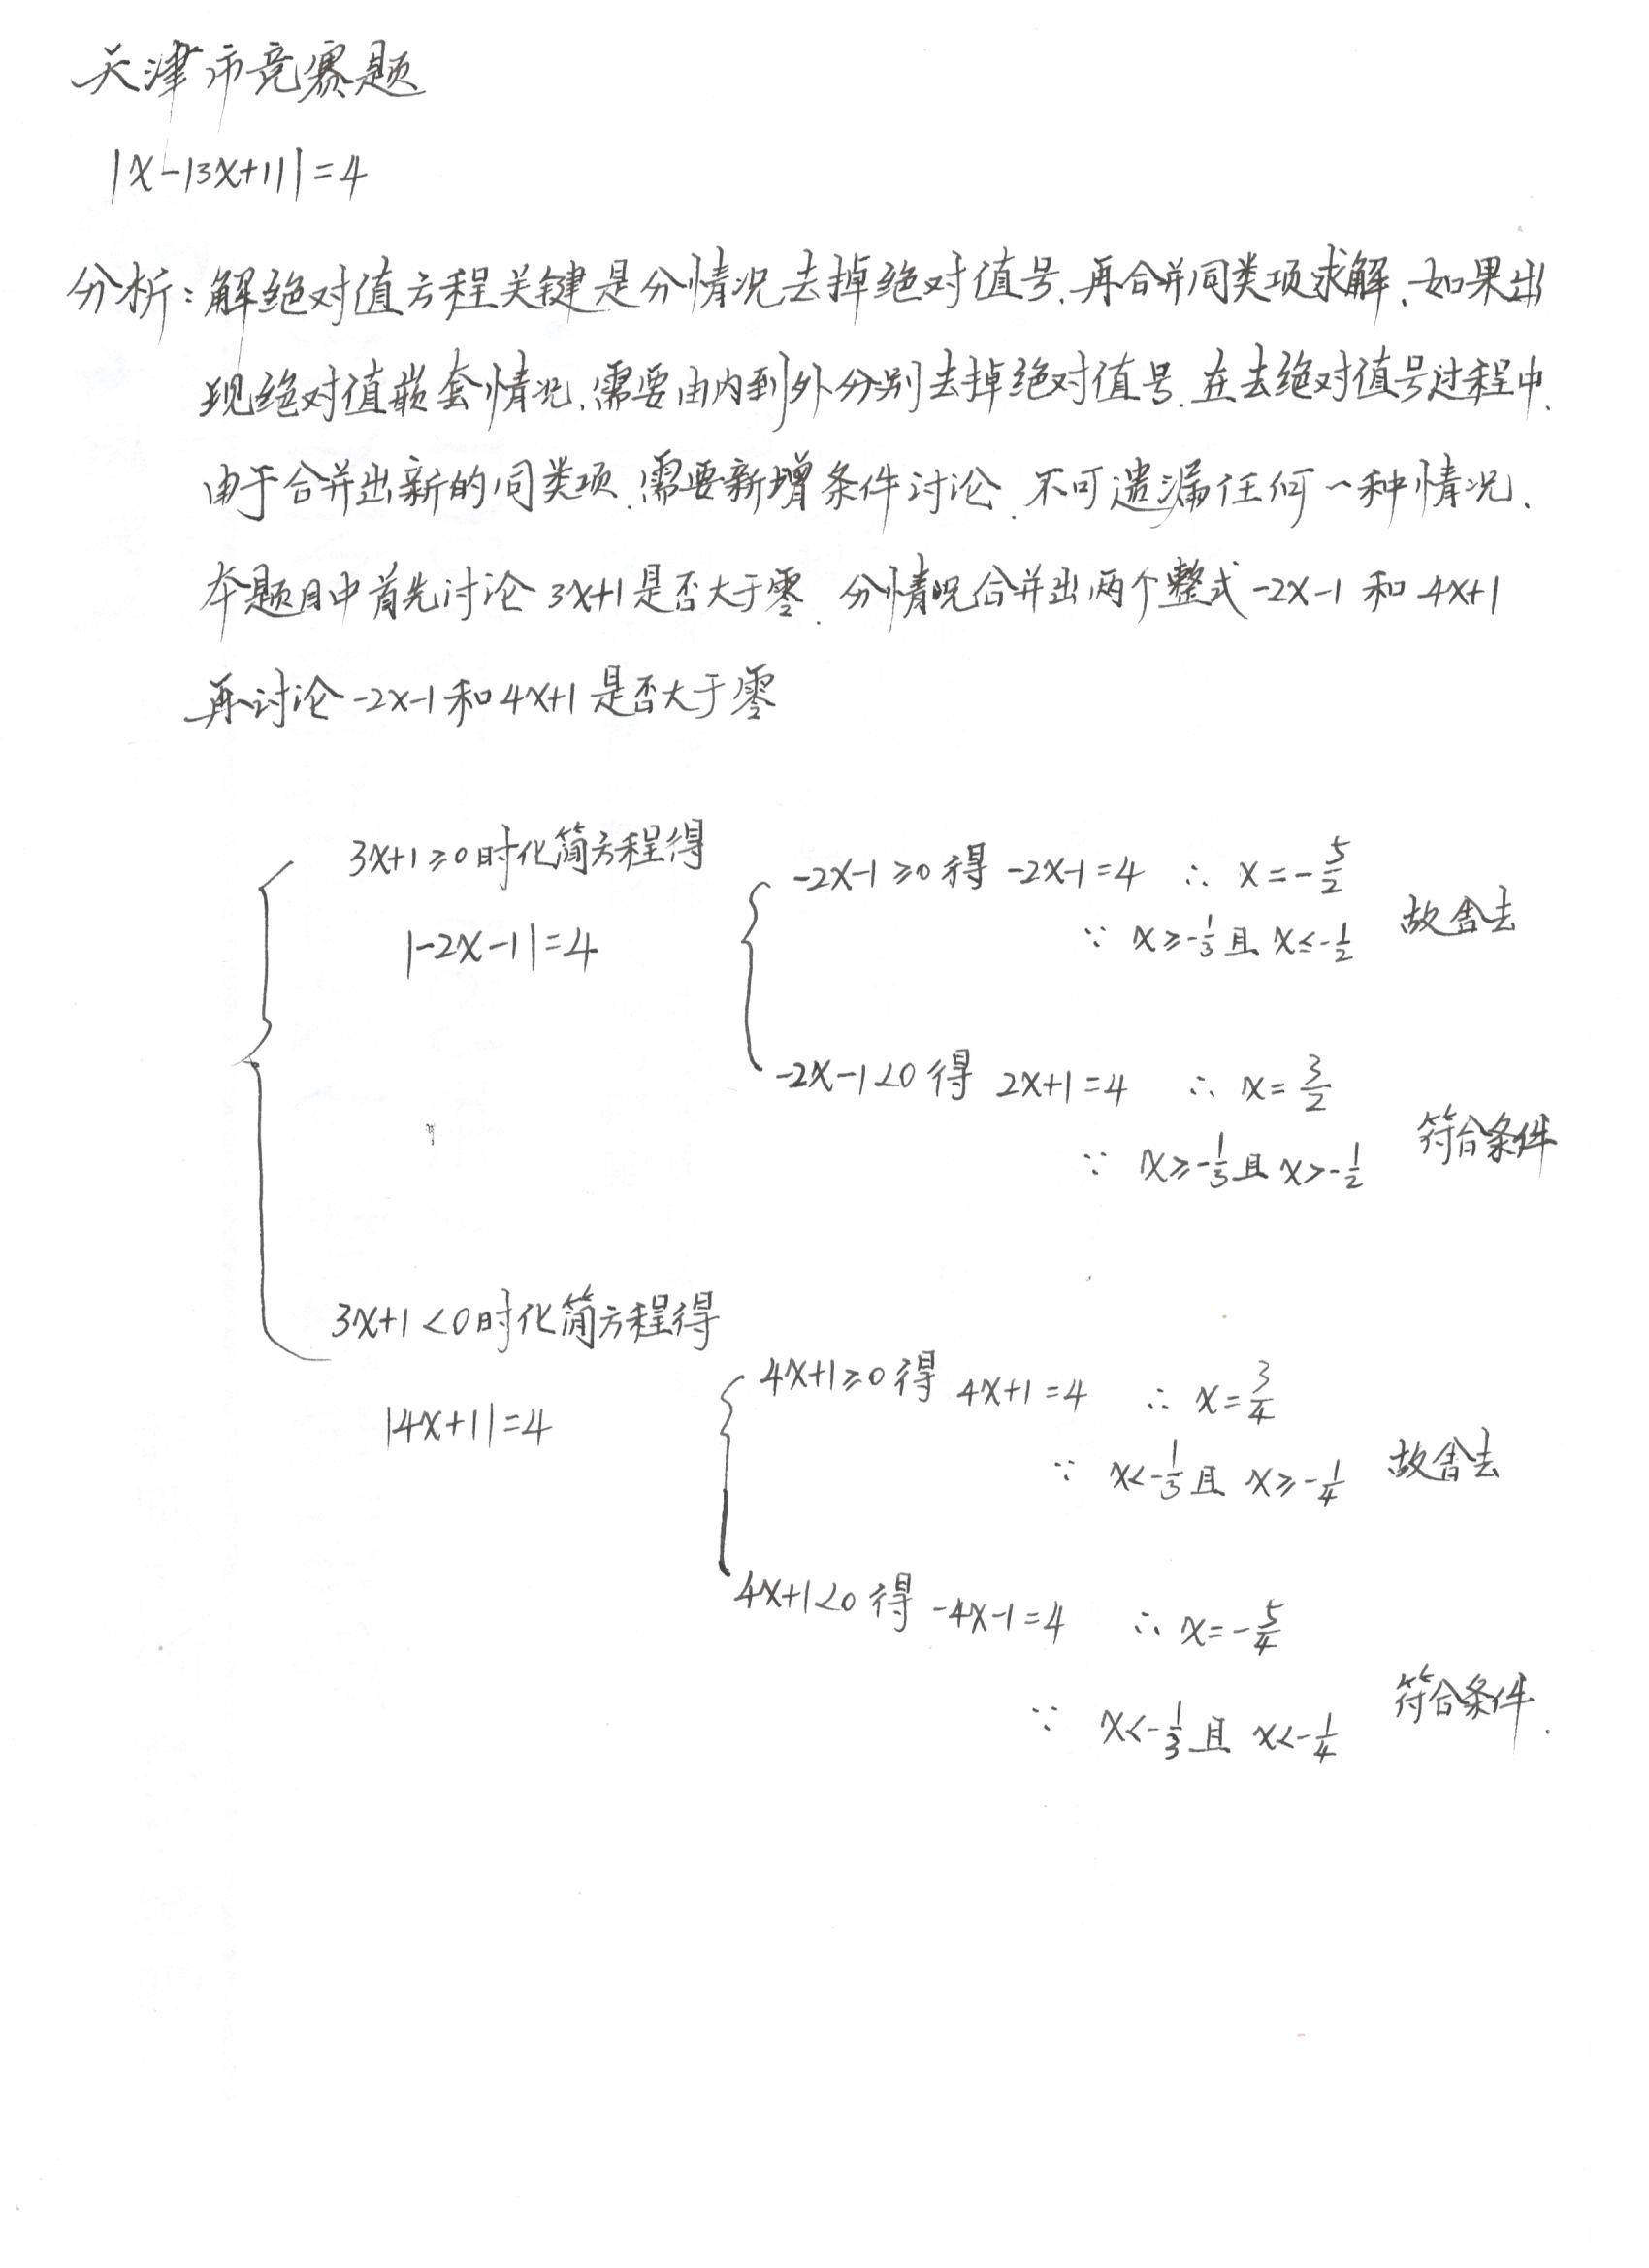 天津市竞赛题
|x-|3x+1||=4
分析：解绝对值方程关键是分情况去掉绝对值号，再合并同类项求解，如果出
现绝对值嵌套情况，需要由内到外分别去掉绝对值号，在去绝对值号过程中，
由于合并出新的同类项，需要新增条件讨论，不可遗漏任何一种情况，
本题目中首先讨论 3x+1是否大于零，分情况合并出两个整式-2x-1 和 4x+1
再讨论-2x-1和4x+1是否大于零
3x+1≥0时化简方程得
|-2x-1|=4
-2x-1≥0得 -2x-1=4 ∴ x=-5/2
∵ x≥-1/3且 x≤-1/2 故舍去
-2x-1<0得 2x+1=4 ∴ x=3/2
∵ x≥-1/3且x>-1/2 符合条件
3x+1<0时化简方程得
|4x+1|=4
4x+1≥0得 4x+1=4 ∴ x=3/4
∵ x<-1/3且 x≥-1/4 故舍去
4x+1<0得 -4x-1=4 ∴ x=-5/4
∵ x<-1/3且 x<-1/4 符合条件.